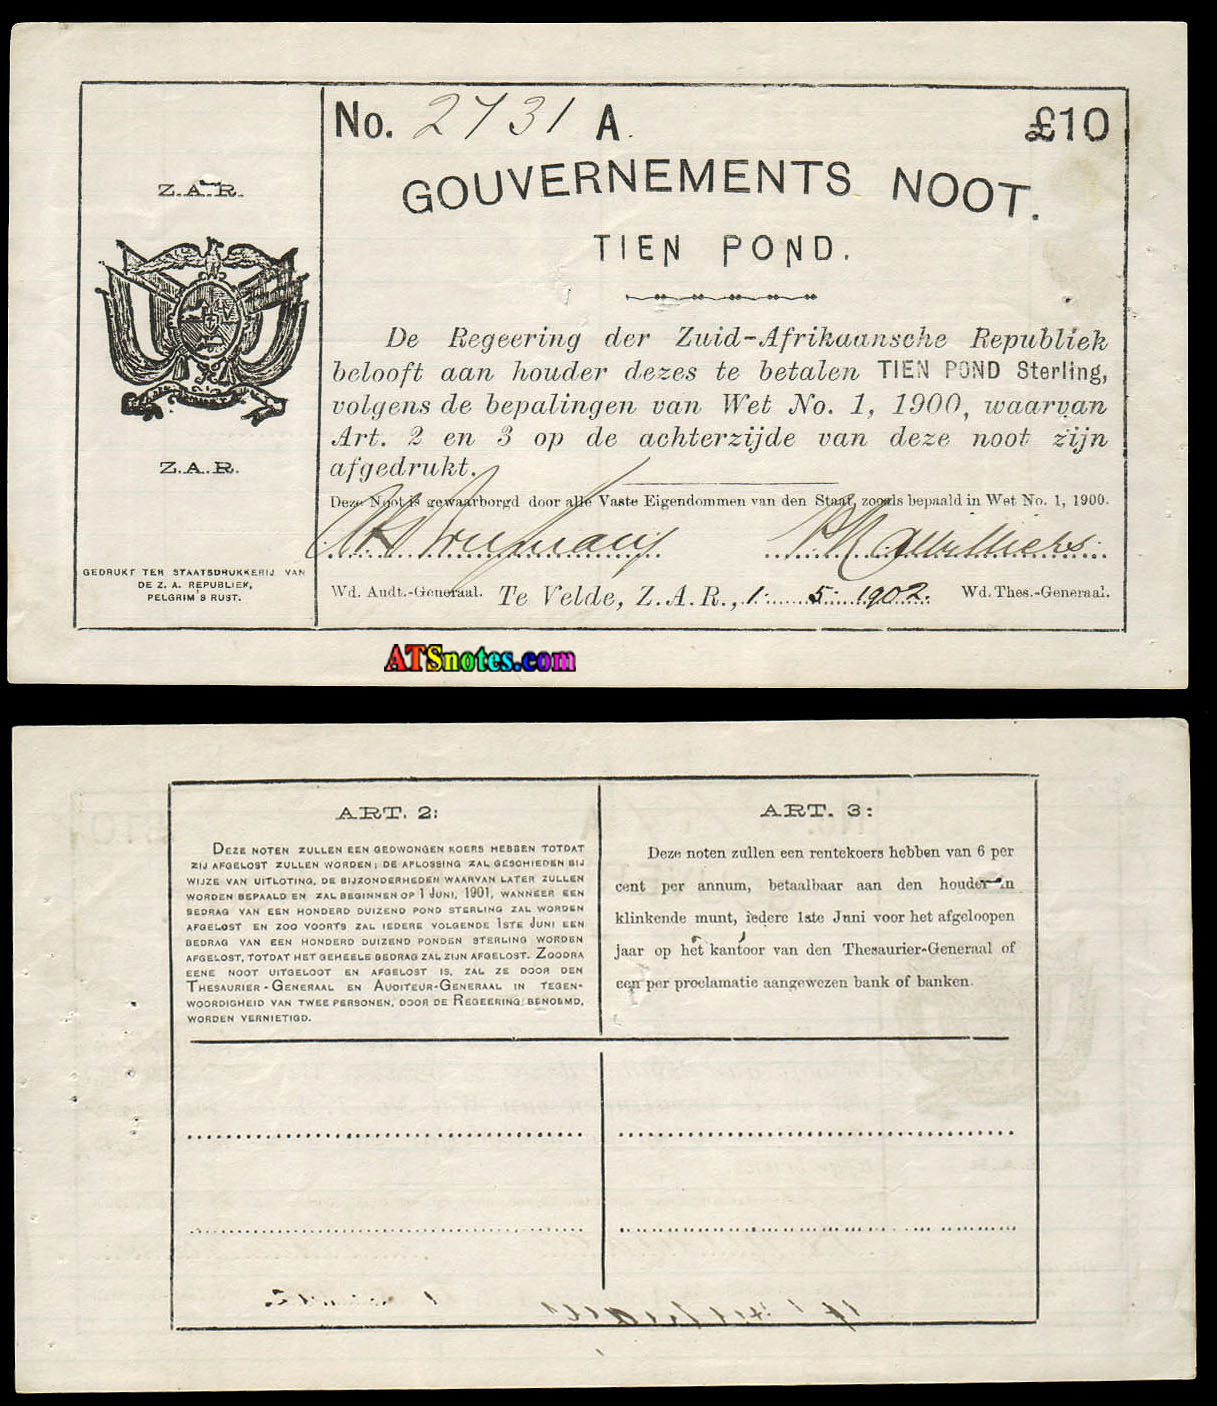 No. 2731 A.
£10
GOUVERNEMENTS NOOT.
TIEN POND.
Z.A.R.
Z.A.R.
De Regeering der Zuid-Afrikaansche Republiek
belooft aan houder dezes te betalen TIEN POND Sterling,
volgens de bepalingen van Wet No. 1, 1900, waarvan
Art. 2 en 3 op de achterzijde van deze noot zijn
afgedrukt.
Deze Noot is gewaarborgd door alle Vaste Eigendommen van den Staat, zooals bepaald in Wet No. 1, 1900.
GEDRUKT TER STAATSDRUKKERIJ VAN
DE Z. A. REPUBLIEK,
PELGRIM'S RUST.
Wd. Audt.-Generaal. Te Velde, Z.A.R., 1. 5. 1902. Wd. Thes.-Generaal.
ATSnotes.com
ART. 2:
DEZE NOTEN ZULLEN EEN GEDWONGEN KOERS HEBBEN TOTDAT
ZIJ AFGELOST ZULLEN WORDEN; DE AFLOSSING ZAL GESCHIEDEN BIJ
WIJZE VAN UITLOTING, DE BIJZONDERHEDEN WAARVAN LATER ZULLEN
WORDEN BEPAALD EN ZAL BEGINNEN OP 1 JUNI, 1901, WANNEER EEN
BEDRAG VAN EEN HONDERD DUIZEND POND STERLING ZAL WORDEN
AFGELOST EN ZOO VOORTS ZAL IEDERE VOLGENDE 1STE JUNI EEN
BEDRAG VAN EEN HONDERD DUIZEND PONDEN STERLING WORDEN
AFGELOST, TOTDAT HET GEHEELE BEDRAG ZAL ZIJN AFGELOST. ZOODRA
EENE NOOT UITGELOOT EN AFGELOST IS, ZAL ZE DOOR DEN
THESAURIER-GENERAAL EN AUDITEUR-GENERAAL IN TEGEN-
WOORDIGHEID VAN TWEE PERSONEN, DOOR DE REGEERING BENOEMD,
WORDEN VERNIETIGD.
ART. 3:
Deze noten zullen een rentekoers hebben van 6 per
cent per annum, betaalbaar aan den houder in
klinkende munt, iedere 1ste Juni voor het afgeloopen
jaar op het kantoor van den Thesaurier-Generaal of
een per proclamatie aangewezen bank of banken.